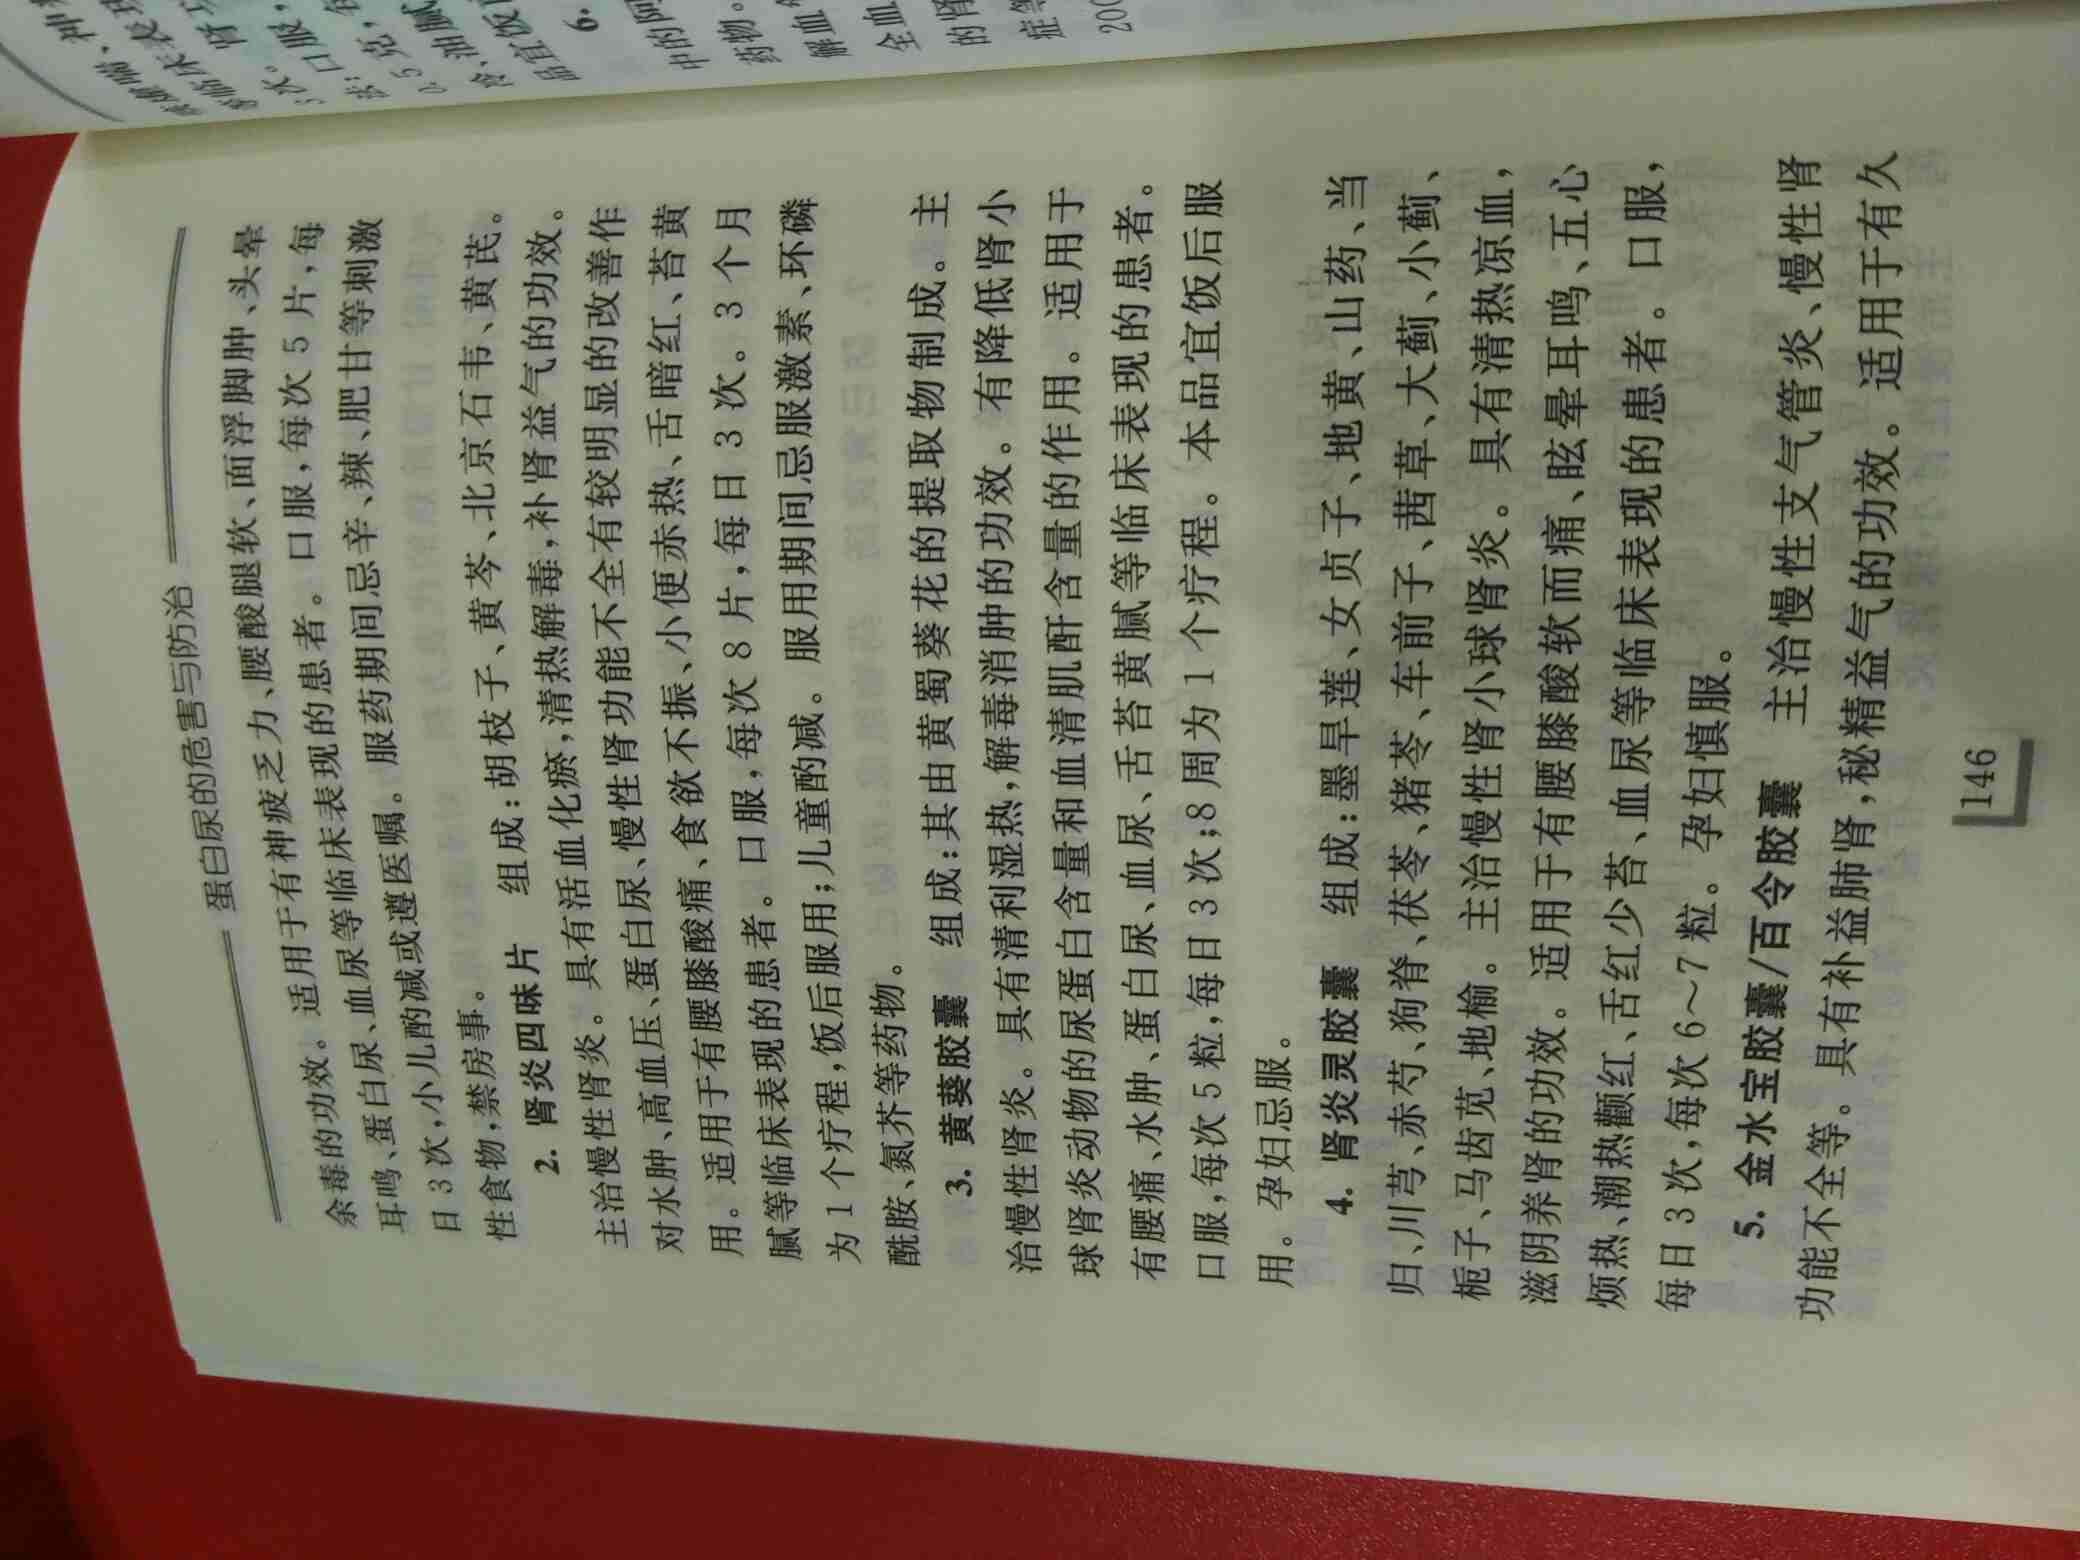 蛋白尿的危害与防治
余毒的功效。适用于有神疲乏力、腰酸腿软、面浮脚肿、头晕
耳鸣、蛋白尿、血尿等临床表现的患者。口服,每次5片,每
日3次,小儿酌减或遵医嘱。服药期间忌辛、辣、肥甘等刺激
性食物,禁房事。
2. 肾炎四味片 组成:胡枝子、黄芩、北京石韦、黄芪。
主治慢性肾炎。具有活血化瘀,清热解毒,补肾益气的功效。
对水肿、高血压、蛋白尿、慢性肾功能不全有较明显的改善作
用。适用于有腰膝酸痛、食欲不振、小便赤热、舌暗红、苔黄
腻等临床表现的患者。口服,每次8片,每日3次。3个月
为1个疗程,饭后服用;儿童酌减。服用期间忌服激素、环磷
酰胺、氮芥等药物。
3. 黄葵胶囊 组成:其由黄蜀葵花的提取物制成。主
治慢性肾炎。具有清利湿热,解毒消肿的功效。有降低肾小
球肾炎动物的尿蛋白含量和血清肌酐含量的作用。适用于
有腰痛、水肿、蛋白尿、血尿、舌苔黄腻等临床表现的患者。
口服,每次5粒,每日3次;8周为1个疗程。本品宜饭后服
用。孕妇忌服。
4. 肾炎灵胶囊 组成:墨旱莲、女贞子、地黄、山药、当
归、川芎、赤芍、狗脊、茯苓、猪苓、车前子、茜草、大蓟、小蓟、
栀子、马齿苋、地榆。主治慢性肾小球肾炎。具有清热凉血,
滋阴养肾的功效。适用于有腰膝酸软而痛、眩晕耳鸣、五心
烦热、潮热颧红、舌红少苔、血尿等临床表现的患者。口服,
每日3次,每次6～7粒。孕妇慎服。
5. 金水宝胶囊/百令胶囊 主治慢性支气管炎、慢性肾
功能不全等。具有补益肺肾,秘精益气的功效。适用于有久
146
次。
0.5克,每
品宜饭
6.
中的阿
药物。
解血
全血
的肾
症等
200